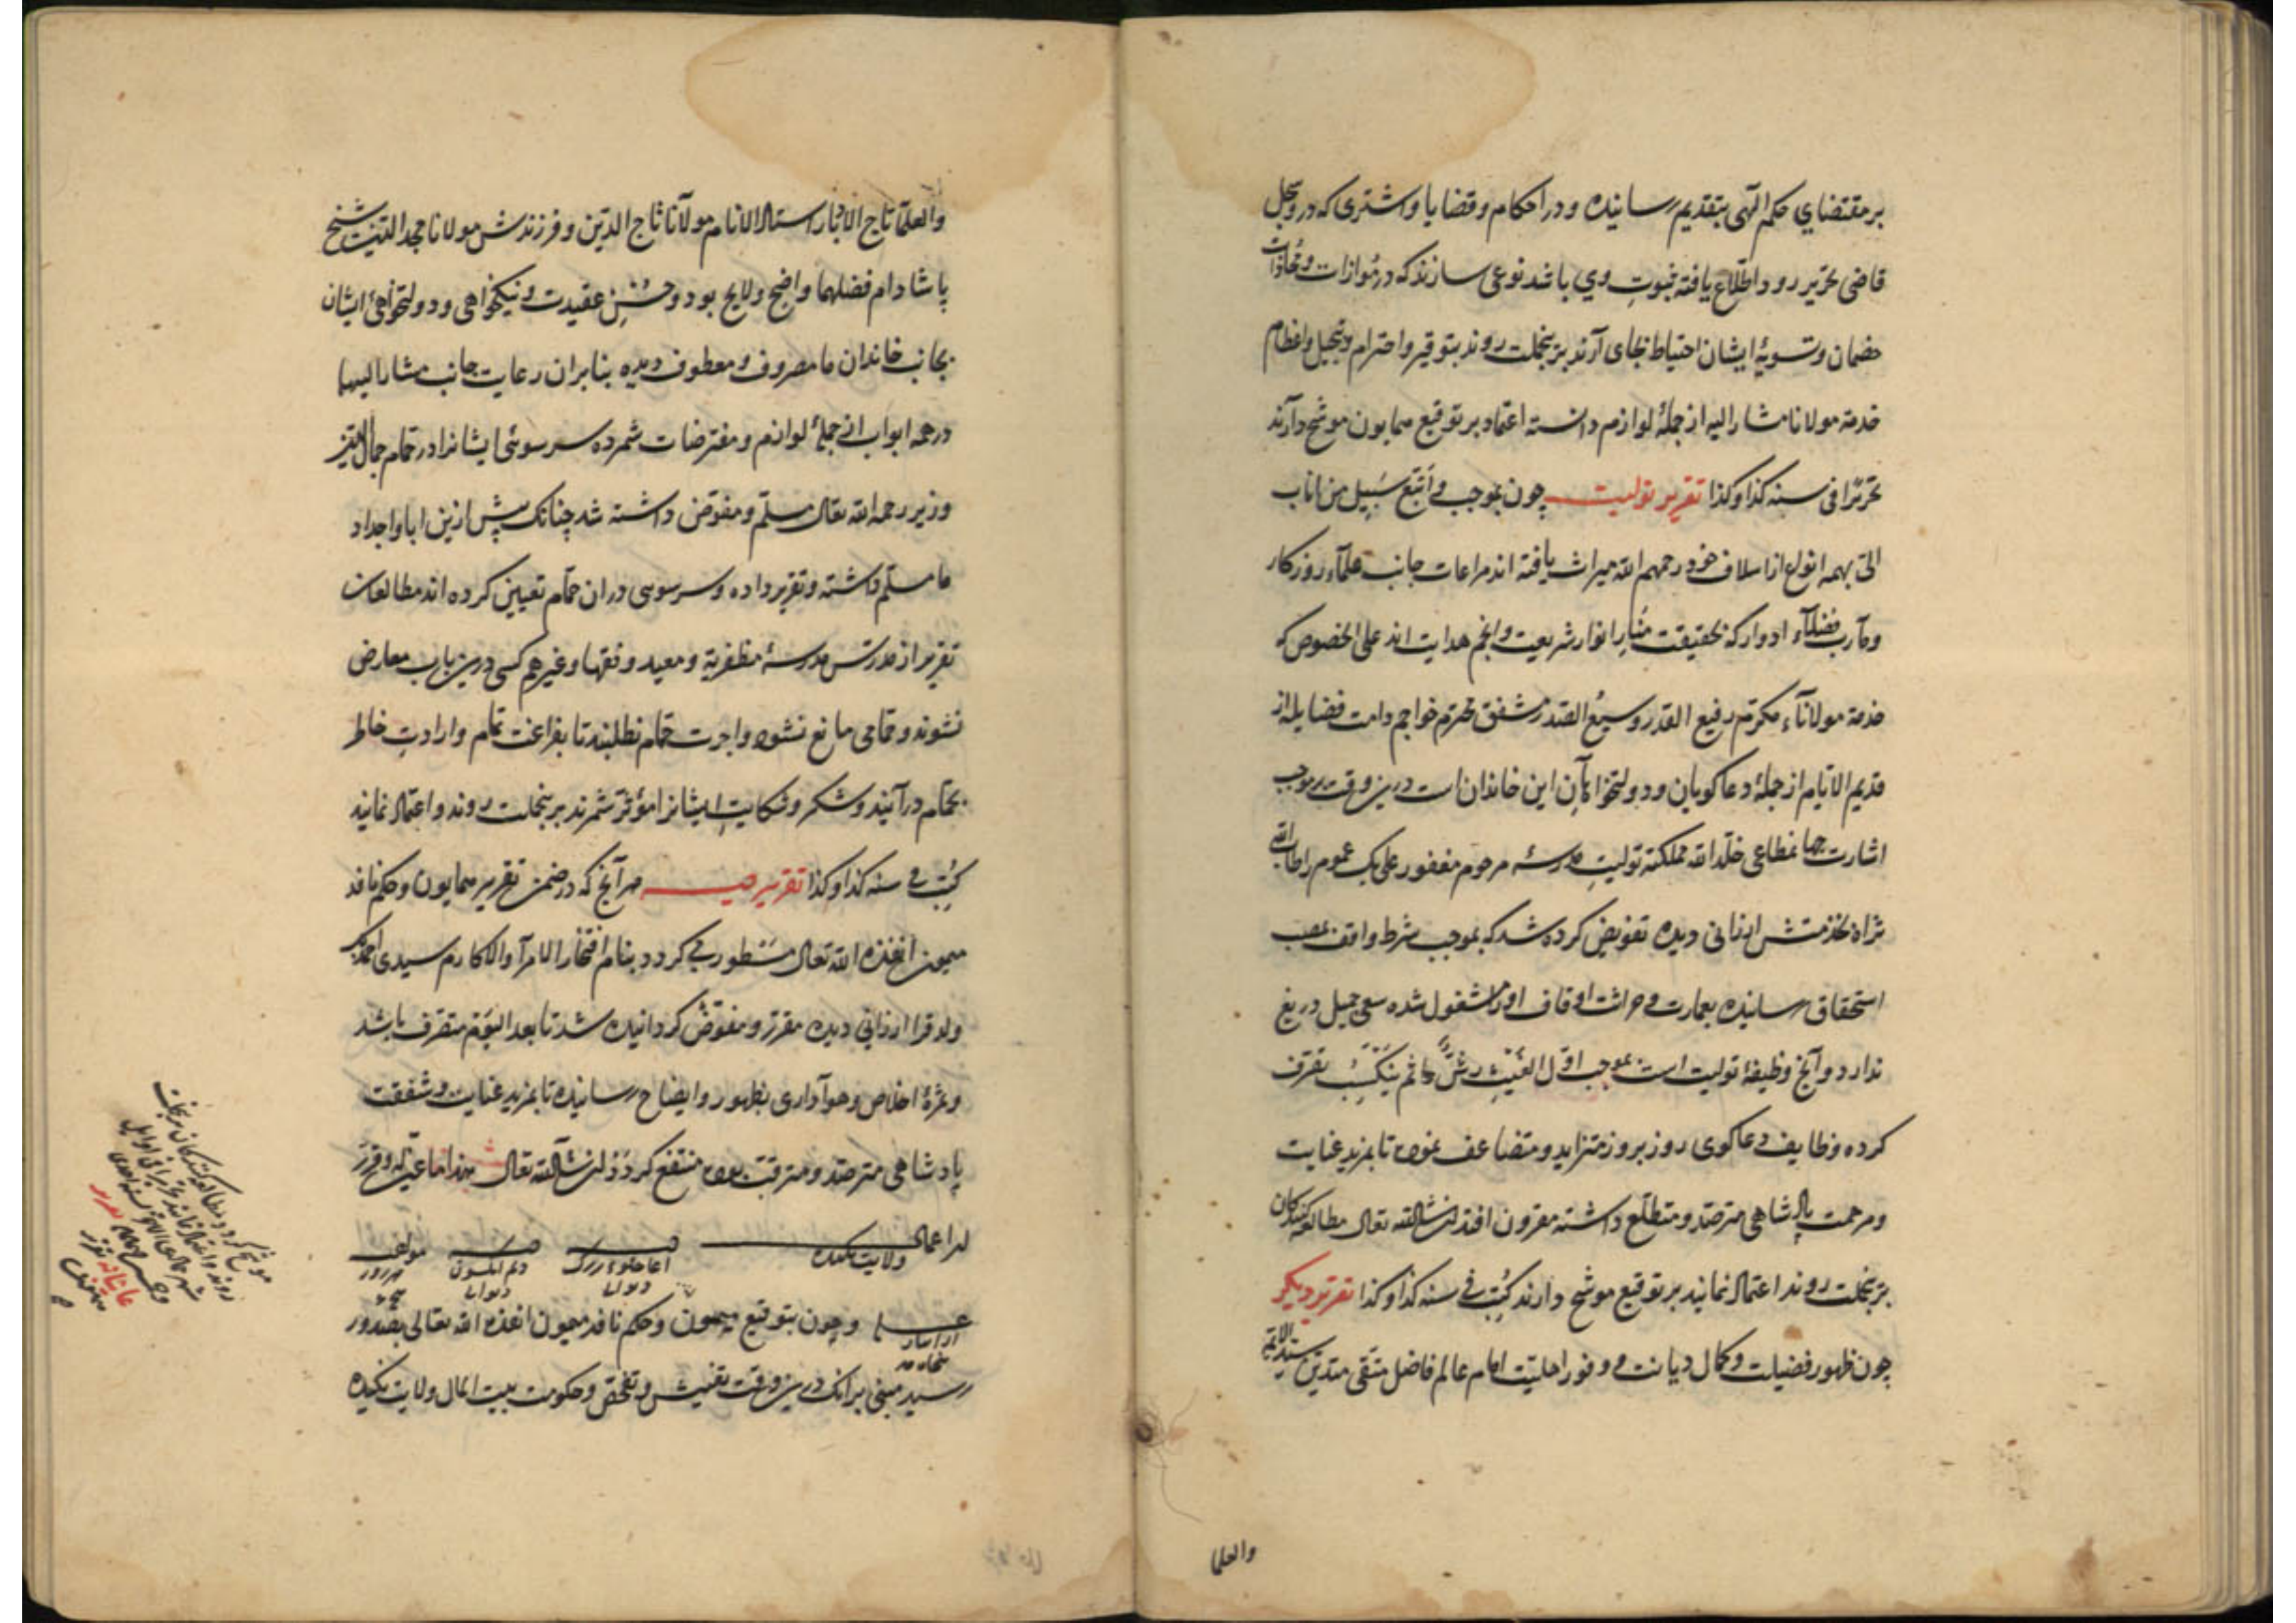 بر مقتضای حکم الهی بتقدیم رسانیده و در احکام و قضایا و اشتری که در وسجل
قاضی تحریر رود اطلاع یافته بثبوت وی باشد نوعی سازند که در موازات و محاذات
خصمان و تسویهٔ ایشان احتیاط بجای آرند برینجملت روند بتوقیر و احترام و تبجیل و اعظام
خدمة مولانا مشار الیه از جملهٔ لوازم دانسته اعتماد بر توقیع همایون موشح دارند
تحریرا فی سنه کذا و کذا تقریر تولیت چون بموجب و اتبع سبیل من اناب
الی بهمه انواع از اسلاف خود رحمهم الله میراث یافته اند مراعات جانب علمآء روزکار
و مآرب فضلآء ادوار که بحقیقت منار انوار شریعت و انجم هدایت اند علی الخصوص که
خدمة مولاناء مکرم رفیع القدر وسیع الصدر مشفق محترم خواجم دامت فضایله از
قدیم الایام از جملهٔ دعاکویان و دولتخواهان این خاندان است درین وقت بموجب
اشارت جهانمطاعی خلد الله مملکته تولیت مدرسهٔ مرحوم مغفور علی بک عموم را طاب الله
ثراه بخدمتش ارزانی دیده تفویض کرده شد که بموجب شرط واقف بمصب
استحقاق رسانیده بعمارت و حراثت اوقاف او مشغول شده سعی جمیل دریغ
ندارد و آنچ وظیفهٔ تولیت است بموجب اول الغیث رش ثم ینسکب تصرف
کرده وظایف دعاکوی روز بروز متزاید و متضاعف نموده تا بمزید عنایت
و مرحمت پادشاهی مترصد و متطلع داشته مقرون افتد ان شا الله تعالی مطالعه کنندکان
برینجملت روند اعتماد نمایند بر توقیع موشح دارند کتب فی سنه کذا و کذا تقریر دیکر
چون ظهور فضیلت و کمال دیانت و وفور اهلیت امام عالم فاضل متقی متدین سید الایمه
والعلما
والعلما تاج الاخیار استاد الانام مولانا تاج الدین و فرزندش مولانا مجد الدین شیخ
پاشا دام فضلهما واضح و لایح بود و حسن عقیدت و نیکخواهی و دولتخواهی ایشان
بجانب خاندان ما مصروف و معطوف دیده بنابران رعایت جانب مشار الیهما
در همه ابواب از جملهٔ لوازم و مفترضات شمرده سرسوشی ایشانرا در حمام جمال الدین
وزیر رحمه الله تعالی مسلم و مفوض داشته شد چنانک پیش ازین ابا و اجداد
ما مسلم داشته و تقریر داده و سرسوسی دران حمام تعیین کرده اند مطالعات
تقریر از مدرس مدرسهٔ مظفریه و معید و فقها و غیرهم کسی درین باب معارض
نشوند و حمامی مانع نشود و اجرت حمام نطلبند تا بفراغت تمام و ارادت خاطر
بحمام درآیند و شکر و شکایت ایشانرا مؤثر شمرند برینجملت روند و اعتماد نمایند
کتب فی سنه کذا و کذا تقریر هر آنچ که در ضمن تقریر همایون و حکم نافذ
میمون انفذه الله تعالی مسطور می کردد بنام افتخار الامرآ و الاکارم سیدی احمد بک
ولد قرا ارزانی دیده مقرر و مفوض کردانیده شد تا بعد الیوم متصرف باشد
و ثمرهٔ اخلاص و هوآداری بظهور و ایضاح رسانیده تا بمزید عنایت و شفقت
پادشاهی مترصد و مترقب بوده منتفع کردد ان شآ الله تعالی هذا ما عین له و قرر
ولایت نکیده
و چون بتوقیع میمون و حکم نافذ میمون انفذه الله تعالی بصدور
رسید مبنی برانک درین وقت تفتیش و تفحص و حکومت بیت المال ولایت نکیده